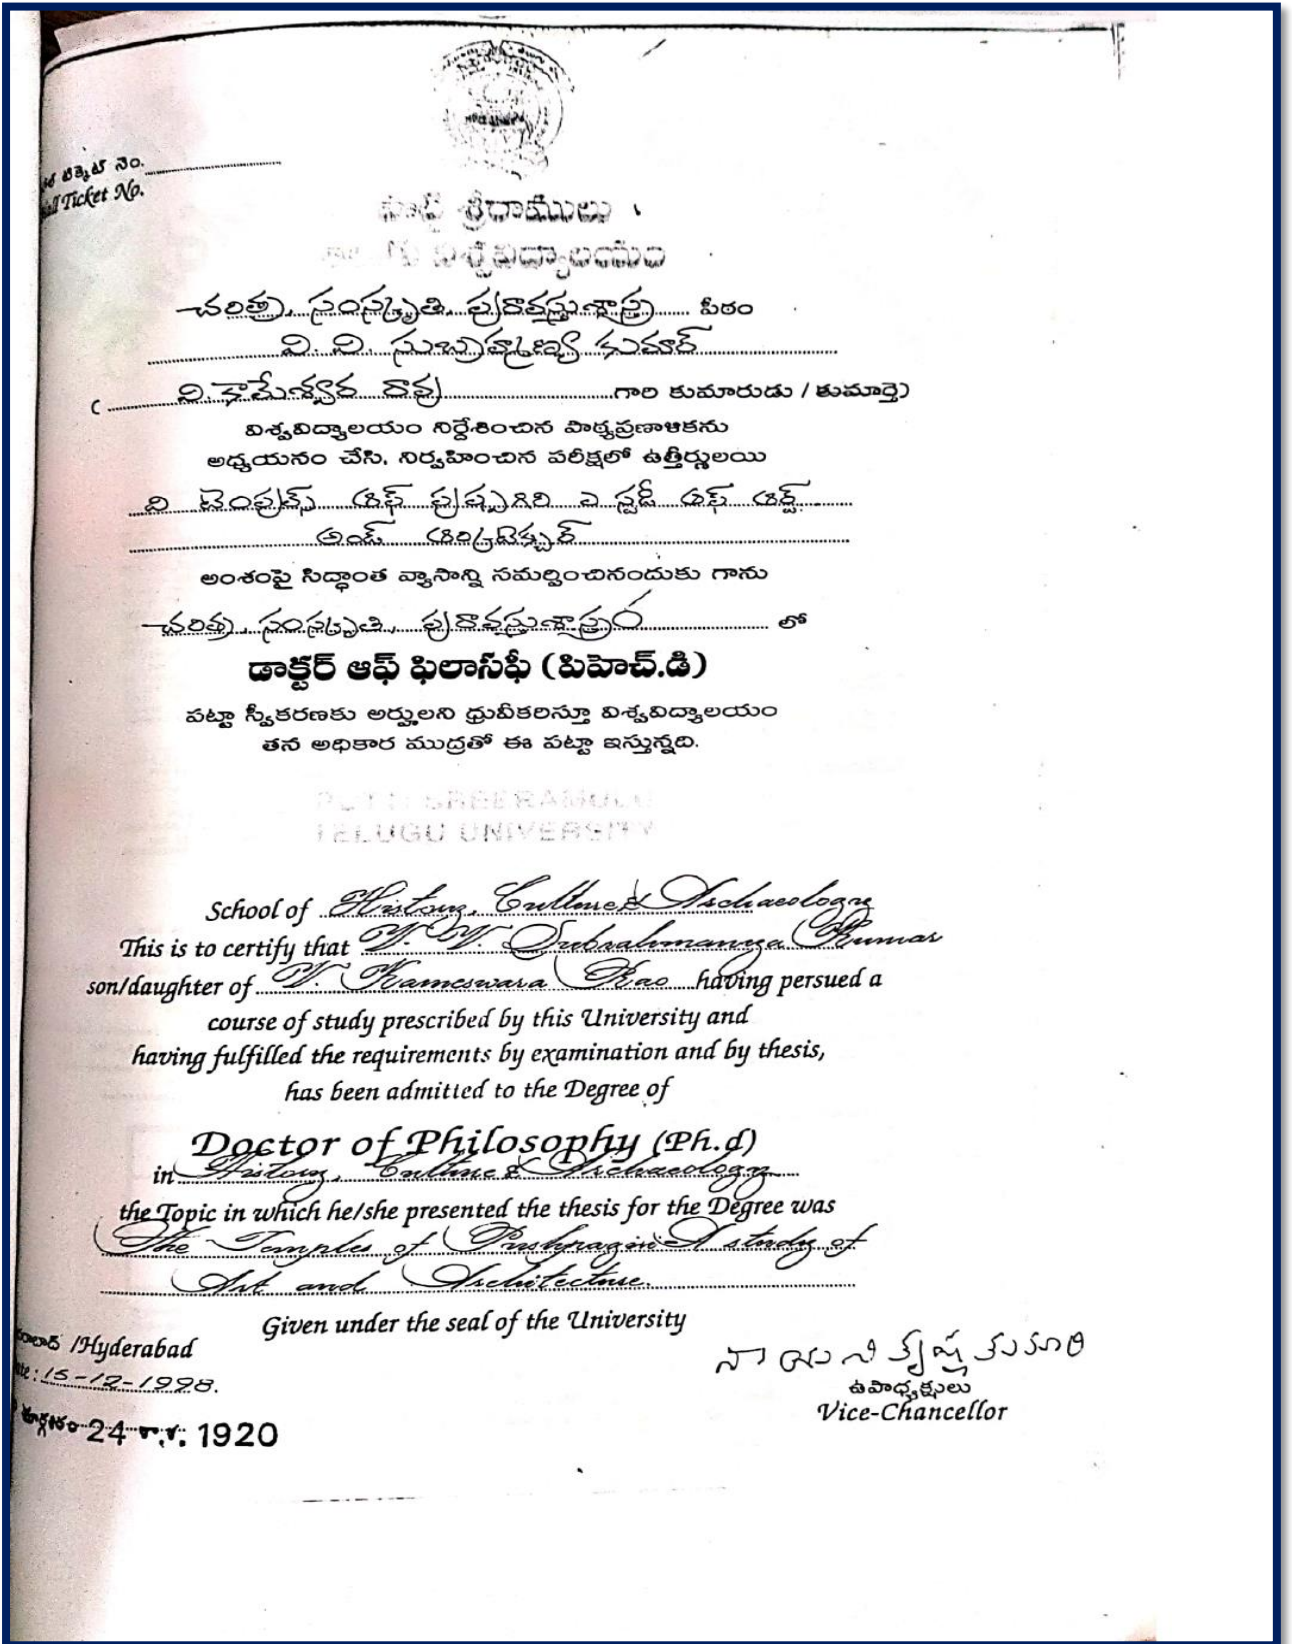 టిక్కెట్ నెం.
Ticket No.
శ్రీరాములు
విశ్వవిద్యాలయం
చరిత్ర, సంస్కృతి, పురావస్తుశాస్త్ర పీఠం
వి. వి. సుబ్రహ్మణ్య కుమార్
( వి. కామేశ్వర రావు గారి కుమారుడు / కుమార్తె)
విశ్వవిద్యాలయం నిర్దేశించిన పాఠ్యప్రణాళికను
అధ్యయనం చేసి, నిర్వహించిన పరీక్షలో ఉత్తీర్ణులయి
ది టెంపుల్స్ ఆఫ్ పుష్పగిరి ఎ స్టడీ ఆఫ్ ఆర్ట్
అండ్ ఆర్కిటెక్చర్
అంశంపై సిద్ధాంత వ్యాసాన్ని సమర్పించినందుకు గాను
చరిత్ర, సంస్కృతి, పురావస్తుశాస్త్రం లో
డాక్టర్ ఆఫ్ ఫిలాసఫీ (పిహెచ్.డి)
పట్టా స్వీకరణకు అర్హులని ధ్రువీకరిస్తూ విశ్వవిద్యాలయం
తన అధికార ముద్రతో ఈ పట్టా ఇస్తున్నది.
SREERAMULU
TELUGU UNIVERSITY
School of History, Culture & Archaeology
This is to certify that V. V. Subrahmanya Kumar
son/daughter of V. Kameswara Rao having persued a
course of study prescribed by this University and
having fulfilled the requirements by examination and by thesis,
has been admitted to the Degree of
Doctor of Philosophy (Ph.d)
in History, Culture & Archaeology
the Topic in which he/she presented the thesis for the Degree was
The Temples of Pushpagiri A study of
Art and Architecture.
Given under the seal of the University
/Hyderabad
15-12-1998.
24 శా.శ. 1920
ఉపాధ్యక్షులు
Vice-Chancellor